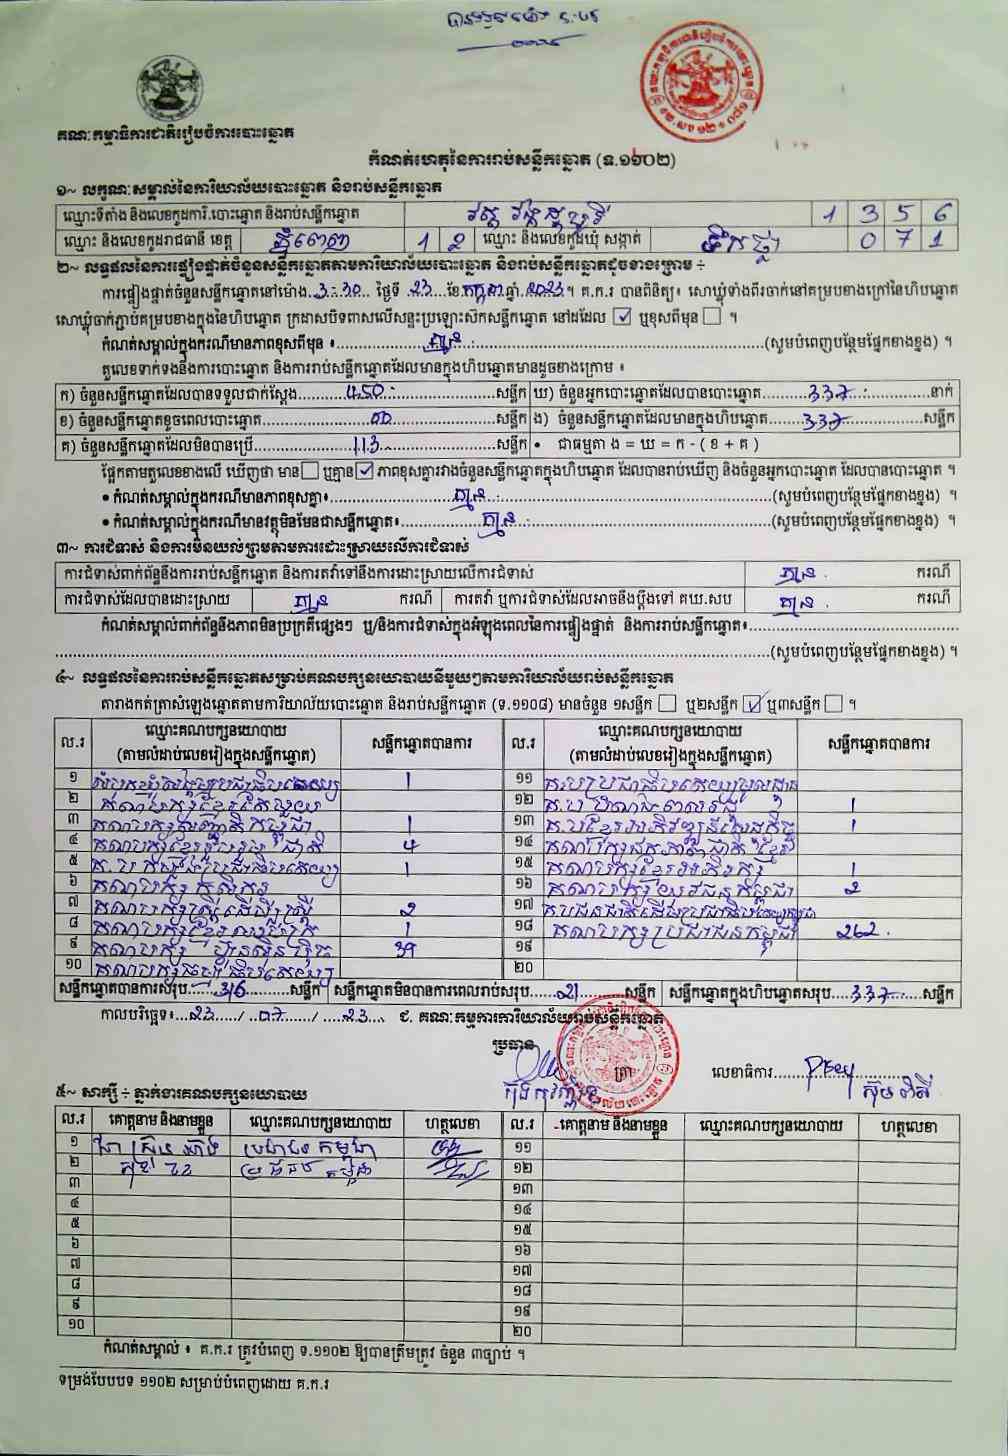 គណៈកម្មាធិការជាតិរៀបចំការបោះឆ្នោត
កំណត់ហេតុនៃការរាប់សន្លឹកឆ្នោត (ទ.១១០២)
១~ លក្ខណៈសម្គាល់នៃការិយាល័យបោះឆ្នោត និងរាប់សន្លឹកឆ្នោត
ឈ្មោះទីតាំង និងលេខកូដការិ.បោះឆ្នោត និងរាប់សន្លឹកឆ្នោត វត្ត 1 3 5 6
ឈ្មោះ និងលេខកូដរាជធានី ខេត្ត ភ្នំពេញ 1 2 ឈ្មោះ និងលេខកូដឃុំ សង្កាត់ ទឹកថ្លា 0 7 1
២~ លទ្ធផលនៃការផ្ទៀងផ្ទាត់ចំនួនសន្លឹកឆ្នោតតាមការិយាល័យបោះឆ្នោត និងរាប់សន្លឹកឆ្នោតដូចខាងក្រោម ÷
ការផ្ទៀងផ្ទាត់ចំនួនសន្លឹកឆ្នោតនៅម៉ោង 3:30 ថ្ងៃទី 23 ខែ កក្កដា ឆ្នាំ 2023 ។ គ.ក.រ បានពិនិត្យ៖ សោឃ្លុំទាំងពីរចាក់នៅគម្របខាងក្រៅនៃហិបឆ្នោត
សោឃ្លុំចាក់ភ្ជាប់គម្របខាងក្នុងនៃហិបឆ្នោត ក្រដាសបិទពាសលើសន្ទះប្រឡោះសិកសន្លឹកឆ្នោត នៅដដែល ☑ ឬខុសពីមុន ☐ ។
កំណត់សម្គាល់ក្នុងករណីមានភាពខុសពីមុន ៖ គ្មាន (សូមបំពេញបន្ថែមផ្នែកខាងខ្នង) ។
តួលេខទាក់ទងនឹងការបោះឆ្នោត និងការរាប់សន្លឹកឆ្នោតដែលមានក្នុងហិបឆ្នោតមានដូចខាងក្រោម ៖
ក) ចំនួនសន្លឹកឆ្នោតដែលបានទទួលជាក់ស្តែង 450 សន្លឹក ឃ) ចំនួនអ្នកបោះឆ្នោតដែលបានបោះឆ្នោត 337 នាក់
ខ) ចំនួនសន្លឹកឆ្នោតខូចពេលបោះឆ្នោត 00 សន្លឹក ង) ចំនួនសន្លឹកឆ្នោតដែលមានក្នុងហិបឆ្នោត 337 សន្លឹក
គ) ចំនួនសន្លឹកឆ្នោតដែលមិនបានប្រើ 113 សន្លឹក • ជាធម្មតា ង = ឃ = ក - ( ខ + គ )
ផ្អែកតាមតួលេខខាងលើ ឃើញថា មាន ☐ ឬគ្មាន ☑ ភាពខុសគ្នារវាងចំនួនសន្លឹកឆ្នោតក្នុងហិបឆ្នោត ដែលបានរាប់ឃើញ និងចំនួនអ្នកបោះឆ្នោត ដែលបានបោះឆ្នោត ។
• កំណត់សម្គាល់ក្នុងករណីមានភាពខុសគ្នា៖ គ្មាន (សូមបំពេញបន្ថែមផ្នែកខាងខ្នង) ។
• កំណត់សម្គាល់ក្នុងករណីមានវត្ថុមិនមែនជាសន្លឹកឆ្នោត៖ គ្មាន (សូមបំពេញបន្ថែមផ្នែកខាងខ្នង) ។
៣~ ការជំទាស់ និងការមិនយល់ព្រមតាមការដោះស្រាយលើការជំទាស់
ការជំទាស់ពាក់ព័ន្ធនឹងការរាប់សន្លឹកឆ្នោត និងការតវ៉ាទៅនឹងការដោះស្រាយលើការជំទាស់ គ្មាន ករណី
ការជំទាស់ដែលបានដោះស្រាយ គ្មាន ករណី ការតវ៉ា ឬការជំទាស់ដែលអាចនឹងប្តឹងទៅ គឃ.សប គ្មាន ករណី
កំណត់សម្គាល់ពាក់ព័ន្ធនឹងភាពមិនប្រក្រតីផ្សេងៗ ឬ/និងការជំទាស់ក្នុងអំឡុងពេលនៃការផ្ទៀងផ្ទាត់ និងការរាប់សន្លឹកឆ្នោត៖
(សូមបំពេញបន្ថែមផ្នែកខាងខ្នង) ។
៤~ លទ្ធផលនៃការរាប់សន្លឹកឆ្នោតសម្រាប់គណបក្សនយោបាយនីមួយៗតាមការិយាល័យរាប់សន្លឹកឆ្នោត
តារាងកត់ត្រាសំឡេងឆ្នោតតាមការិយាល័យបោះឆ្នោត និងរាប់សន្លឹកឆ្នោត (ទ.១១០៨) មានចំនួន ១សន្លឹក ☐ ឬ២សន្លឹក ☑ ឬ៣សន្លឹក ☐ ។
ល.រ ឈ្មោះគណបក្សនយោបាយ (តាមលំដាប់លេខរៀងក្នុងសន្លឹកឆ្នោត) សន្លឹកឆ្នោតបានការ ល.រ ឈ្មោះគណបក្សនយោបាយ (តាមលំដាប់លេខរៀងក្នុងសន្លឹកឆ្នោត) សន្លឹកឆ្នោតបានការ
១ 1 ១១
២ ១២ 1
៣ 1 ១៣ 1
៤ គណបក្សខ្មែររួបរួមជាតិ 4 ១៤
៥ 1 ១៥ 1
៦ គណបក្សកសិករ ១៦ គណបក្សយុវជនកម្ពុជា 2
៧ គណបក្សស្ត្រីដើម្បីស្ត្រី 2 ១៧
៨ 1 ១៨ គណបក្សប្រជាជនកម្ពុជា 262
៩ គណបក្សហ៊្វុនស៊ិនប៉ិច 39 ១៩
១០ ២០
សន្លឹកឆ្នោតបានការសរុប 316 សន្លឹក សន្លឹកឆ្នោតមិនបានការពេលរាប់សរុប 21 សន្លឹក សន្លឹកឆ្នោតក្នុងហិបឆ្នោតសរុប 337 សន្លឹក
កាលបរិច្ឆេទ៖ 23 / 07 / 23 ជ. គណៈកម្មការការិយាល័យរាប់សន្លឹកឆ្នោត
ប្រធាន
ត្រា លេខាធិការ
៥~ សាក្សី ÷ ភ្នាក់ងារគណបក្សនយោបាយ
ល.រ គោត្តនាម និងនាមខ្លួន ឈ្មោះគណបក្សនយោបាយ ហត្ថលេខា ល.រ គោត្តនាម និងនាមខ្លួន ឈ្មោះគណបក្សនយោបាយ ហត្ថលេខា
១ ១១
២ ១២
៣ ១៣
៤ ១៤
៥ ១៥
៦ ១៦
៧ ១៧
៨ ១៨
៩ ១៩
១០ ២០
កំណត់សម្គាល់ ៖ គ.ក.រ ត្រូវបំពេញ ទ.១១០២ ឱ្យបានត្រឹមត្រូវ ចំនួន ៣ច្បាប់ ។
ទម្រង់បែបបទ ១១០២ សម្រាប់បំពេញដោយ គ.ក.រ